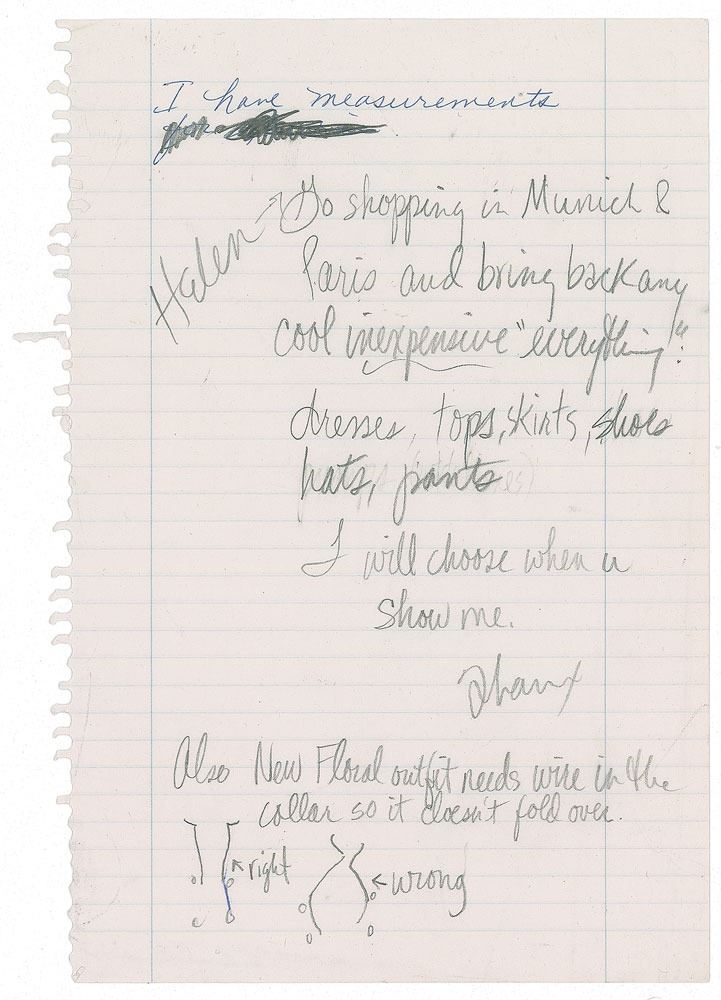 I have measurements
Helen
Go shopping in Munich &
Paris and bring back any
cool inexpensive "everything":
dresses, tops, skirts, shoes
hats, pants
I will choose when u
show me.
Thanx
Also New Floral outfit needs wire in the
collar so it doesn't fold over.
right
wrong